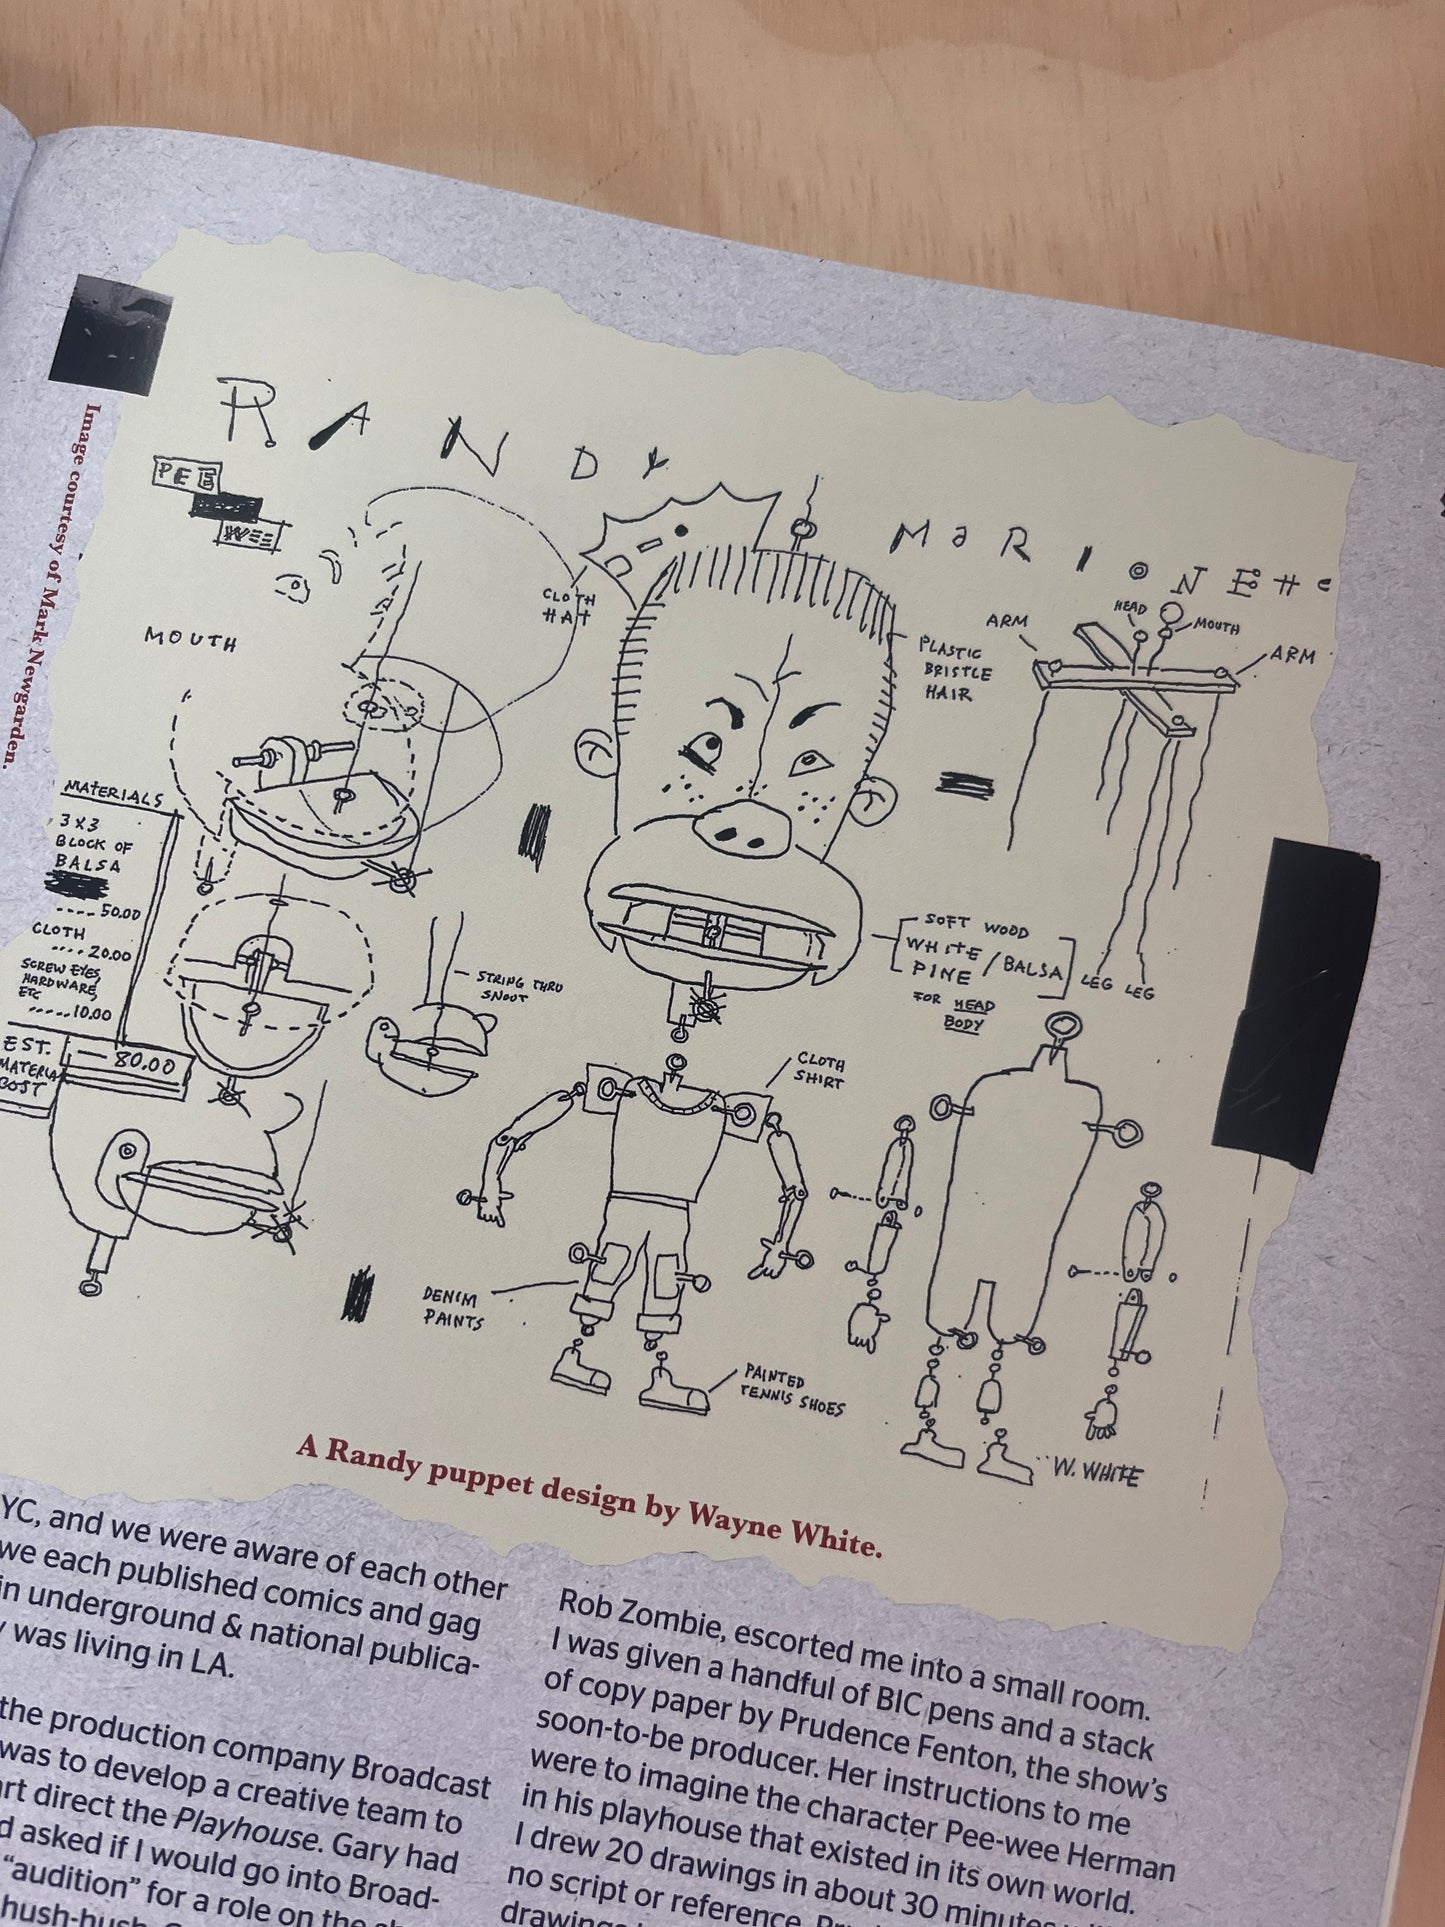 RANDY
MARIONETTE
PEE
WEE
Image courtesy of Mark Newgarden.
MOUTH
CLOTH
HAT
PLASTIC
BRISTLE
HAIR
ARM
HEAD
MOUTH
ARM
LEG LEG
MATERIALS
3 X 3
BLOCK OF
BALSA
----50.00
CLOTH
....20.00
SCREW EYES,
HARDWARE,
ETC
.....10.00
EST.
MATERIAL
COST
80.00
STRING THRU
SNOUT
SOFT WOOD
WHITE / BALSA
PINE
FOR HEAD
BODY
CLOTH
SHIRT
DENIM
PAINTS
PAINTED
TENNIS SHOES
W. WHITE
A Randy puppet design by Wayne White.
YC, and we were aware of each other
we each published comics and gag
in underground & national publica-
was living in LA.
the production company Broadcast
was to develop a creative team to
art direct the Playhouse. Gary had
d asked if I would go into Broad-
"audition" for a role on the
hush-hush.
Rob Zombie, escorted me into a small room.
I was given a handful of BIC pens and a stack
of copy paper by Prudence Fenton, the show's
soon-to-be producer. Her instructions to me
were to imagine the character Pee-wee Herman
in his playhouse that existed in its own world.
I drew 20 drawings in about 30 minutes
no script or reference.
drawings